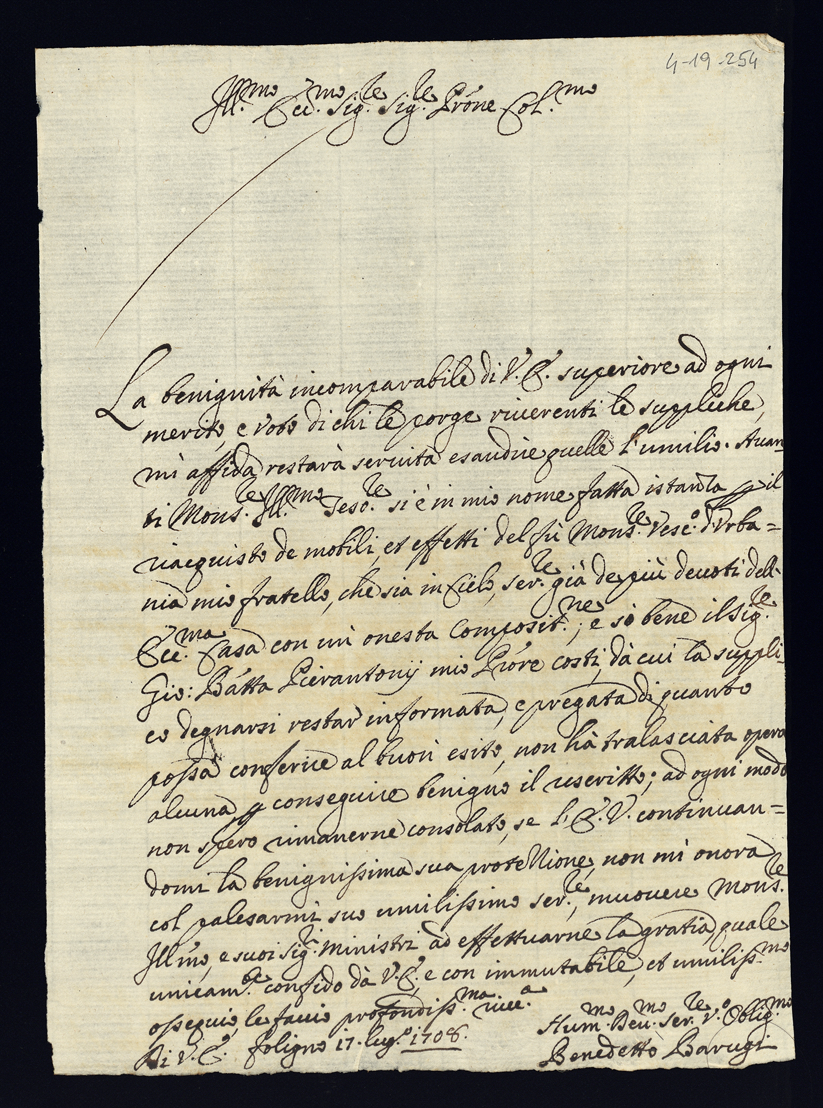 4-19-254
Ill.mo Ecc.mo Sig.re Sig.re Prone Col.mo
La benignità incomparabile di V. E. superiore ad ogni
merito, e voto di chi le porge riverenti le suppliche,
mi affida restarà servita esaudire quelle l'umilio. Avan
ti Mons.re Ill.mo Teso.re si è in mio nome fatta istanza p il
riacquisto de mobili, et effetti del fù Mons.re Vesc.o d'Urba=
nia mio fratello, che sia in Cielo, ser.re già de più devoti dell'
Ecc.ma Casa con un onesta Composit.ne; e sò bene il Sig.re
Gio: Batta Pierantonij mio Priore costi, dà cui la suppli
co degnarsi restar informata, e pregata di quanto
possa conferire al buon esito, non hà tralasciata opera
alcuna p conseguire benigno il rescritto; ad ogni modo
non spero rimanerne consolato, se l'E. V. continuan=
domi la benignissima sua protettione, non mi onora
col palesarmi suo umilissimo ser.re, muovere Mons.re
Ill.mo, e suoi Sig.ri Ministri ad effettuarne la gratia, quale
unicam.te confido dà V. E. e con immutabile, et umiliss.mo
ossequio le facio profondiss.ma rive.a
Di V. E. Foligno 17. lug.o 1708.
Hum.mo Deu.mo Ser.re v.o Oblig.mo
Benedetto Barugi